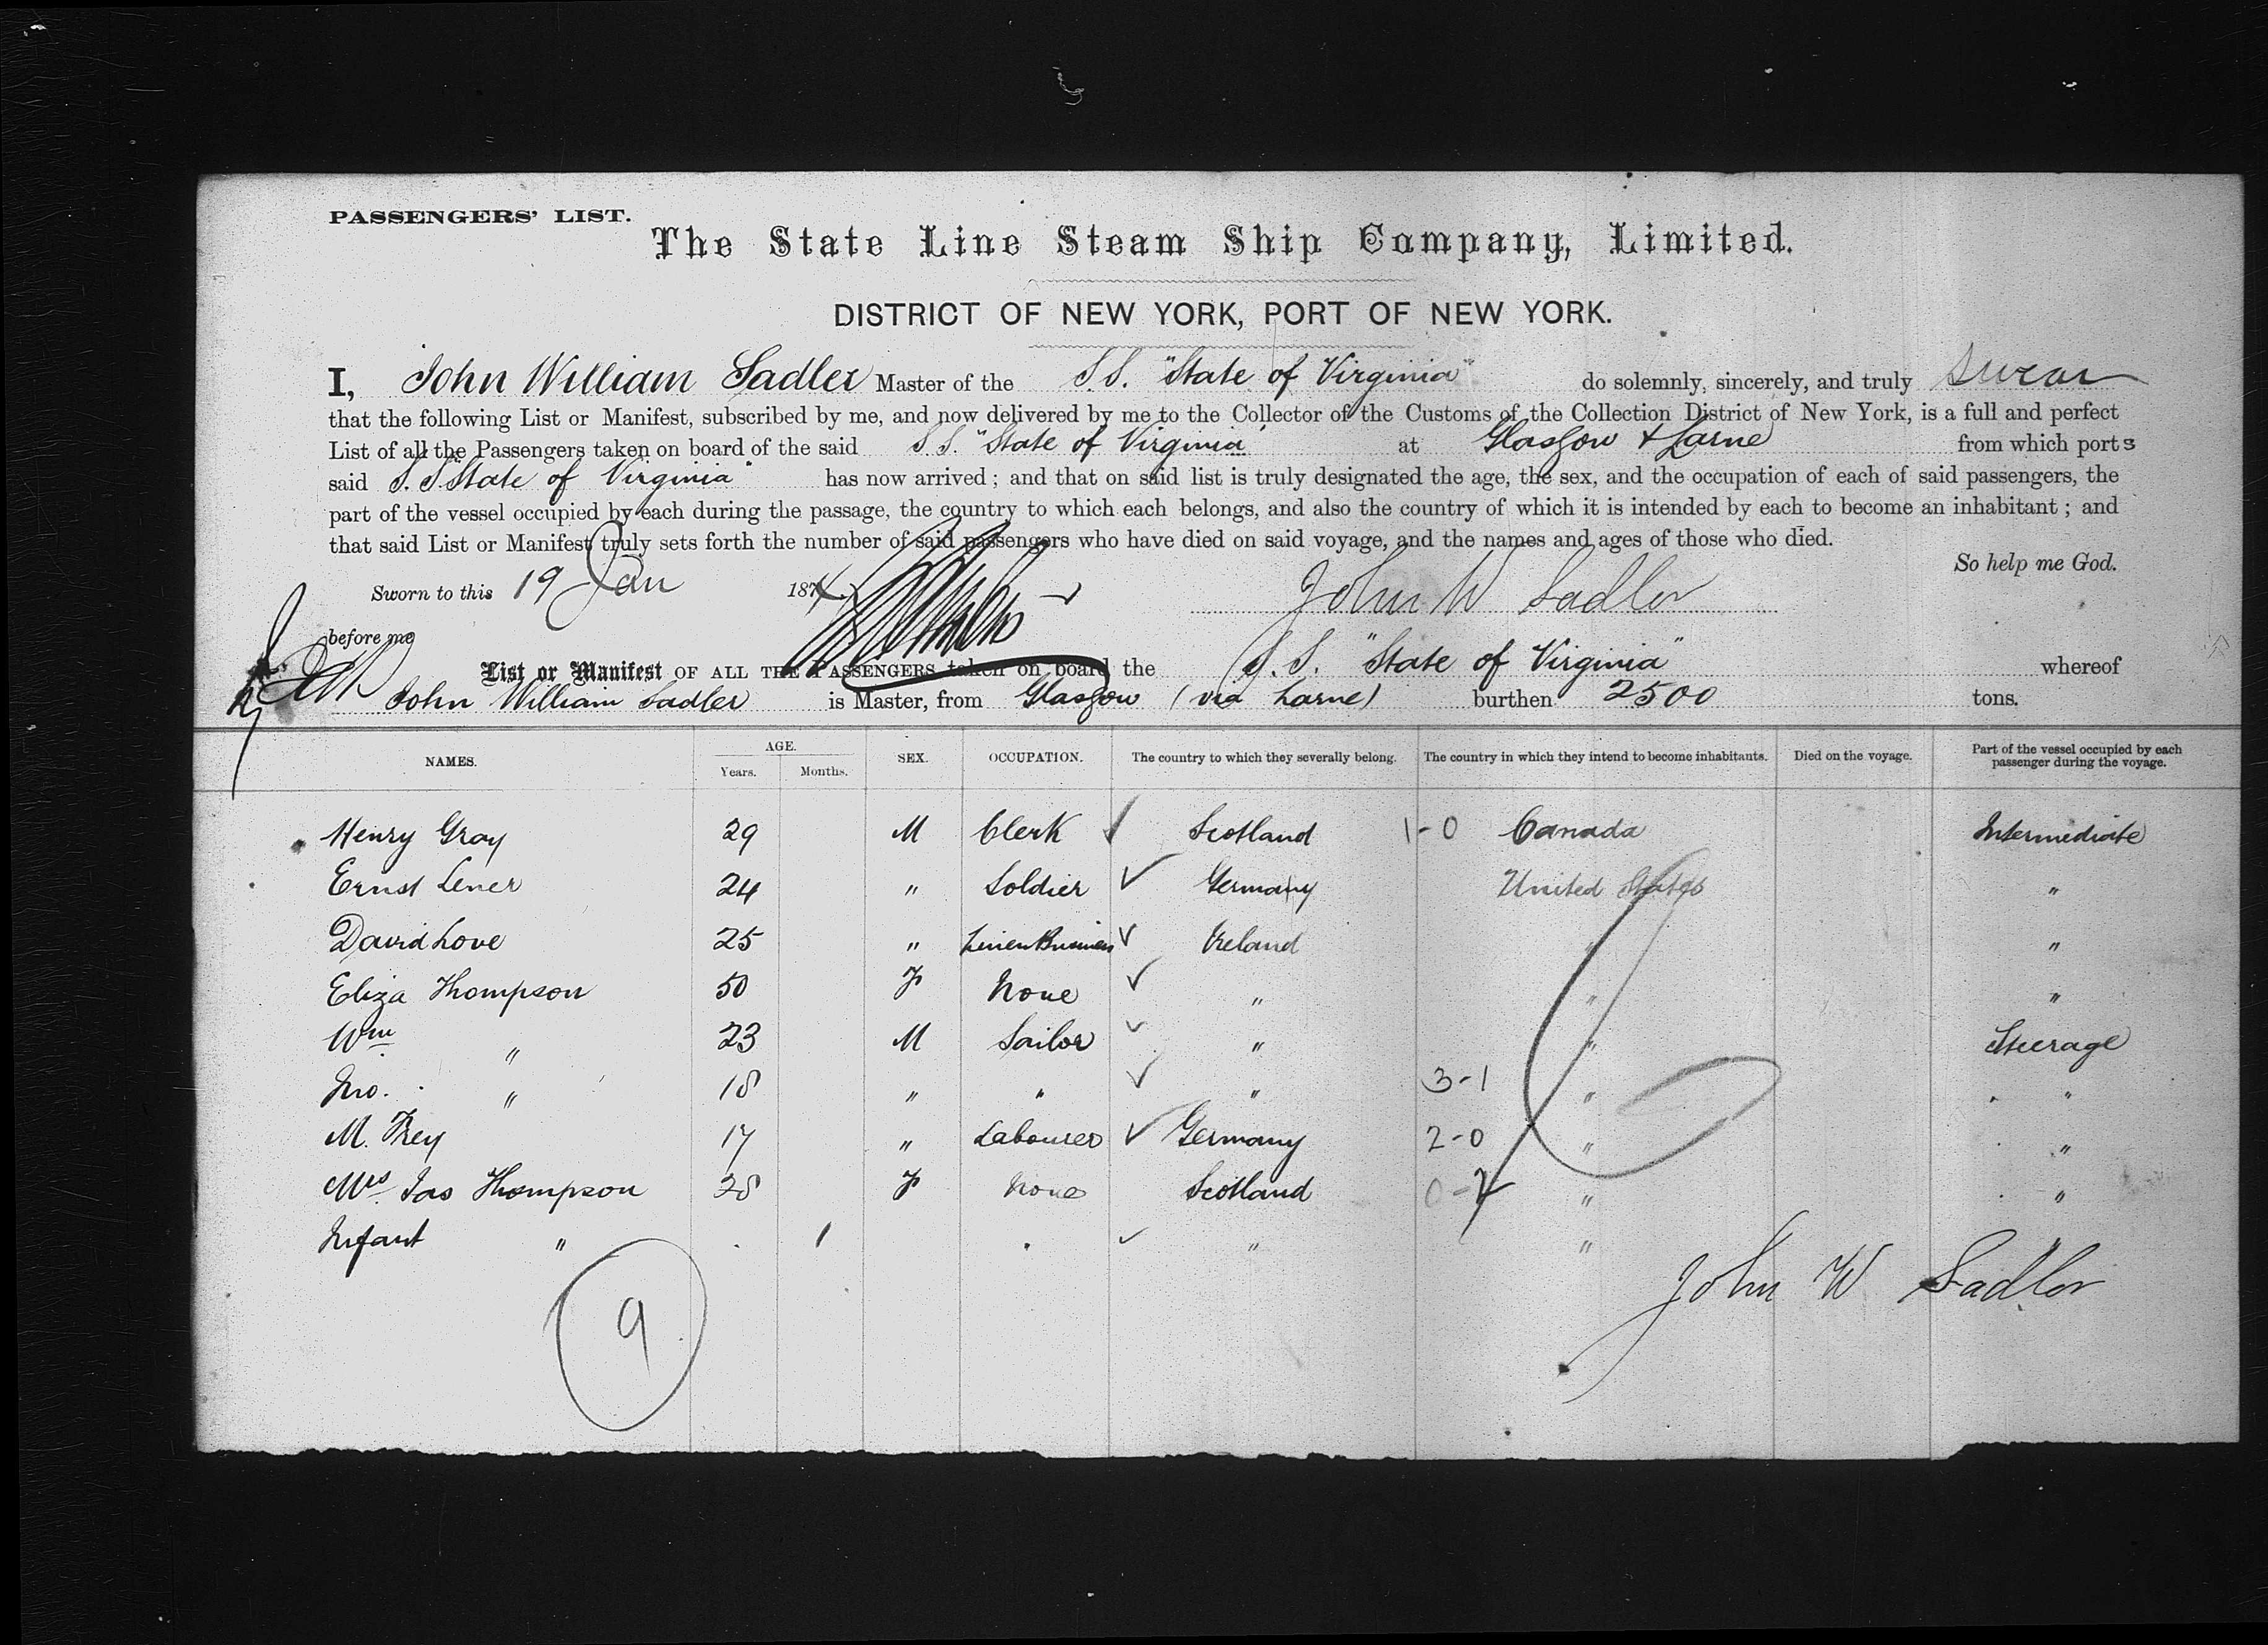 PASSENGERS' LIST.
The State Line Steam Ship Company, Limited.
DISTRICT OF NEW YORK, PORT OF NEW YORK.
I, John William Sadler Master of the S.S. "State of Virginia" do solemnly, sincerely, and truly swear
that the following List or Manifest, subscribed by me, and now delivered by me to the Collector of the Customs of the Collection District of New York, is a full and perfect
List of all the Passengers taken on board of the said S.S. "State of Virginia" at Glasgow & Larne from which ports
said S.S. "State of Virginia" has now arrived; and that on said list is truly designated the age, the sex, and the occupation of each of said passengers, the
part of the vessel occupied by each during the passage, the country to which each belongs, and also the country of which it is intended by each to become an inhabitant; and
that said List or Manifest truly sets forth the number of said passengers who have died on said voyage, and the names and ages of those who died.
So help me God.
Sworn to this 19 Jan 187 John W Sadler
before me
List or Manifest OF ALL THE PASSENGERS taken on board the S.S. "State of Virginia" whereof
John William Sadler is Master, from Glasgow (via Larne) burthen 2500 tons.
NAMES. AGE. Years. Months. SEX. OCCUPATION. The country to which they severally belong. The country in which they intend to become inhabitants. Died on the voyage. Part of the vessel occupied by each passenger during the voyage.
Henry Gray 29 M Clerk Scotland 1-0 Canada Intermediate
Ernst Lener 24 " Soldier Germany United States "
David Love 25 " Linen Business Ireland " "
Eliza Thompson 50 F None " " "
Wm " 23 M Sailor " " Steerage
Jno. " 18 " " " 3-1 " "
M. Frey 17 " Labourer Germany 2-0 " "
Mrs Jas Thompson 28 F None Scotland 0-2 " "
Infant " 1 " " "
John W Sadler
9